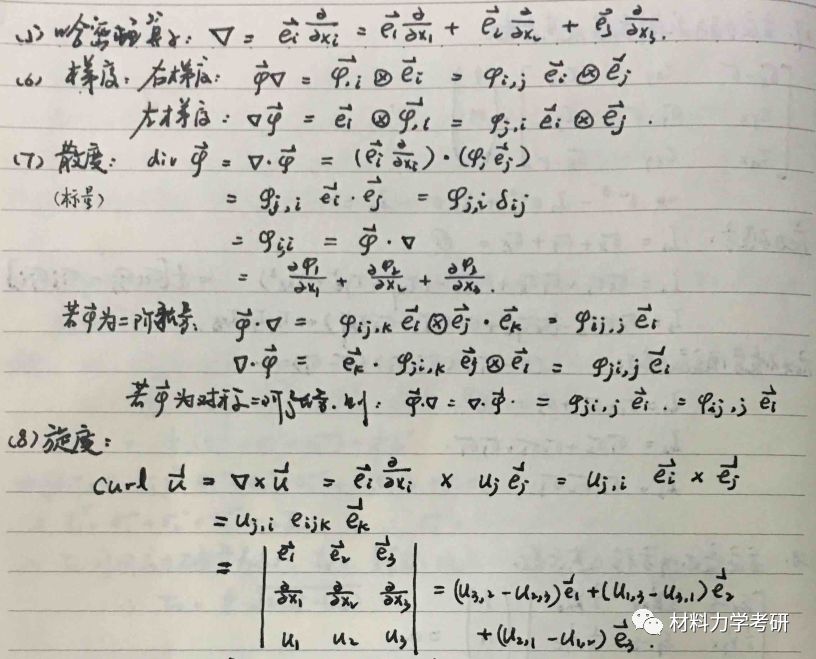 (5) 哈密顿算子: ∇ = e⃗i ∂/∂xi = e⃗1 ∂/∂x1 + e⃗2 ∂/∂x2 + e⃗3 ∂/∂x3.
(6) 梯度: 右梯度: φ⃗∇ = φ⃗,i ⊗ e⃗i = φi,j e⃗i ⊗ e⃗j
左梯度: ∇φ⃗ = e⃗i ⊗ φ⃗,i = φj,i e⃗i ⊗ e⃗j .
(7) 散度: div φ⃗ = ∇·φ⃗ = (e⃗i ∂/∂xi)·(φj e⃗j)
(标量) = φj,i e⃗i · e⃗j = φj,i δij
= φi,i = φ⃗·∇
= ∂φ1/∂x1 + ∂φ2/∂x2 + ∂φ3/∂x3.
若φ⃗为二阶张量, φ⃗·∇ = φij,k e⃗i ⊗ e⃗j · e⃗k = φij,j e⃗i
∇·φ⃗ = e⃗k · φji,k e⃗j ⊗ e⃗i = φji,j e⃗i
若φ⃗为对称二阶张量, 则: φ⃗·∇ = ∇·φ⃗ = φji,j e⃗i = φij,j e⃗i
(8) 旋度:
curl u⃗ = ∇×u⃗ = e⃗i ∂/∂xi × uj e⃗j = uj,i e⃗i × e⃗j
= uj,i eijk e⃗k
= | e⃗1 e⃗2 e⃗3 |
| ∂/∂x1 ∂/∂x2 ∂/∂x3 | = (u3,2 - u2,3)e⃗1 + (u1,3 - u3,1)e⃗2
| u1 u2 u3 | + (u2,1 - u1,2) e⃗3 .
材料力学考研